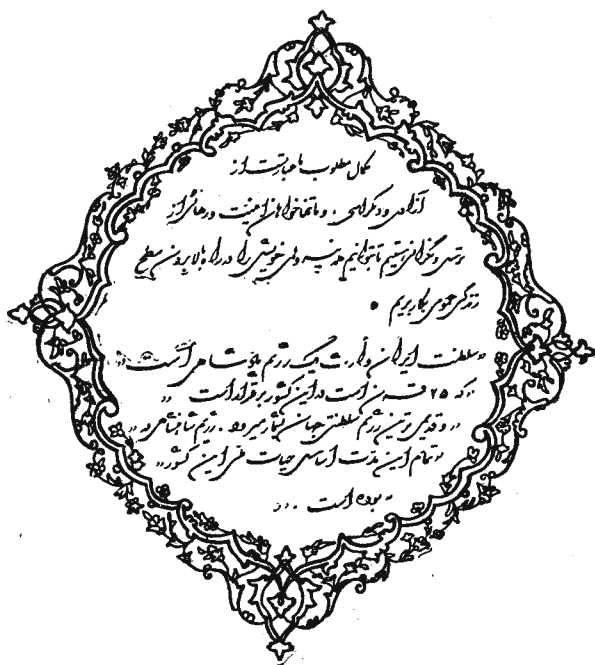 کمال مطلوب ما عبارتست از
آزادی و دمکراسی، و ما تنها خواهان امنیت و رهائی از
ترس و نگرانی هستیم تا بتوانیم همه نیروهای خویش را در راه بالا بردن سطح
زندگی عمومی بکار بریم .
«سلطنت ایران وارث یک رژیم پادشاهی است»
«که ۲۵ قرن است در این کشور برقرار است»
«و قدیمی ترین رژیم سلطنتی جهان بشمار میرود. رژیم شاهنشاهی در»
«تمام این مدت اساس حیات ملی این کشور»
«بوده است .»